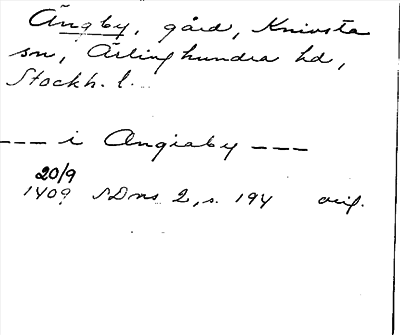 Ängby, gård, Knivsta
sn, Ärlinghundra hd,
Stockh. l.
--- i Angiaby ---
20/9
1409 SDns 2, s. 194 orig.